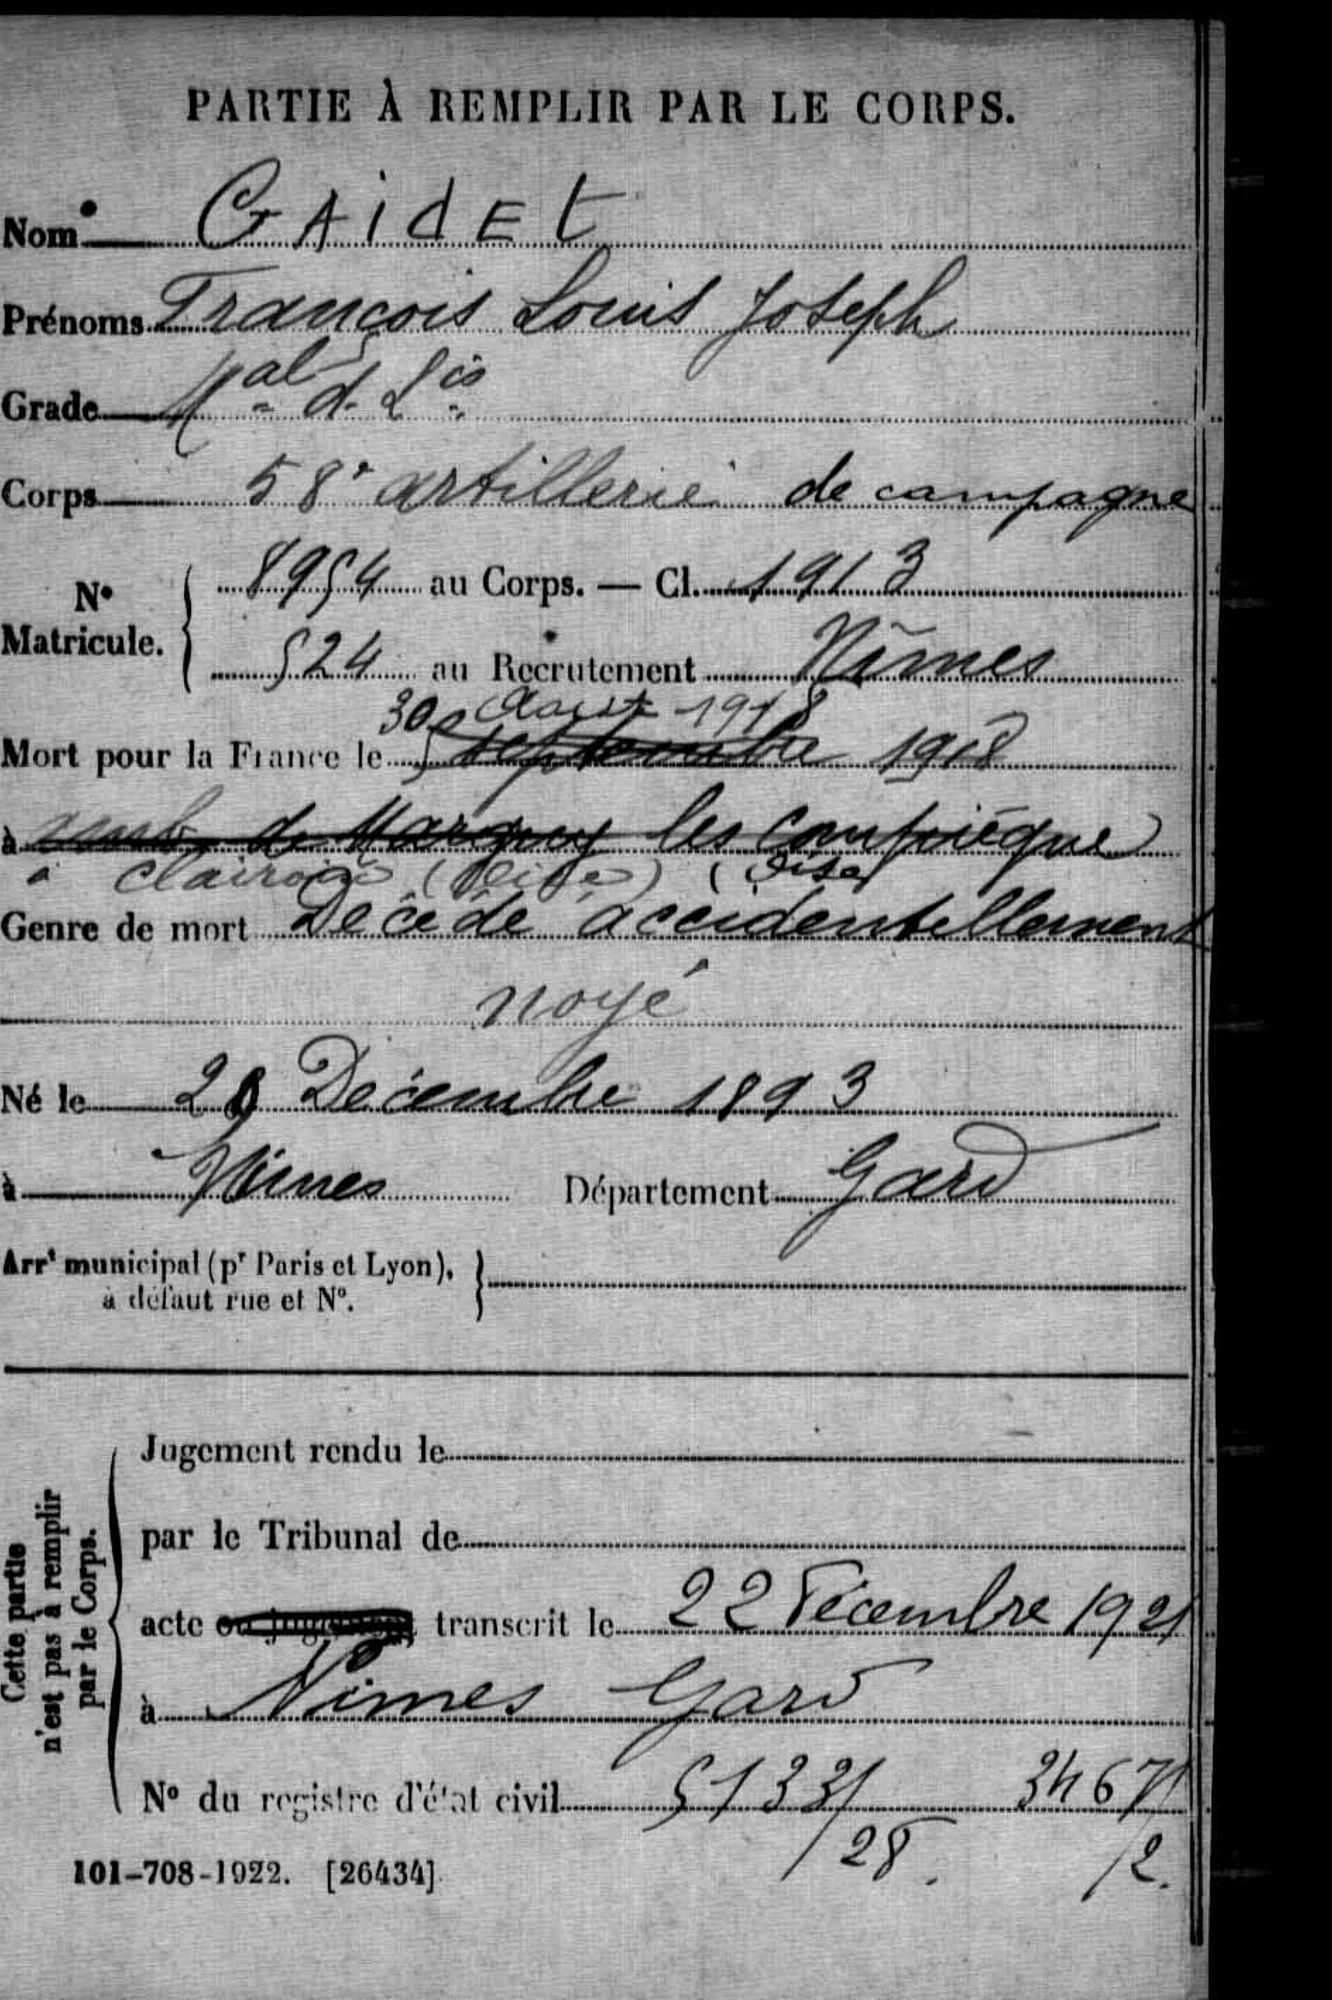 PARTIE À REMPLIR PAR LE CORPS.
Nom GAIdEt
Prénoms François Louis Joseph
Grade Mal d. Lis
Corps 58e artillerie de campagne
N° Matricule. 8954 au Corps. — Cl. 1913
524 au Recrutement Nîmes
30 Aout 1918
Mort pour la France le 5 septembre 1918
à amb. de Margny les Compiègne
à Clairoix (Oise) (Oise)
Genre de mort Décédé accidentellement
noyé
Né le Décembre 1893
à Nimes Département Gard
Arrt municipal (pr Paris et Lyon),
à défaut rue et N°.
Cette partie
n'est pas à remplir
par le Corps.
Jugement rendu le
par le Tribunal de
acte ou jugement transcrit le 22 Décembre 1921
à Nimes Gard
N° du registre d'état civil 5133/ 3467/
/28. /2.
101-708-1922. [26434]